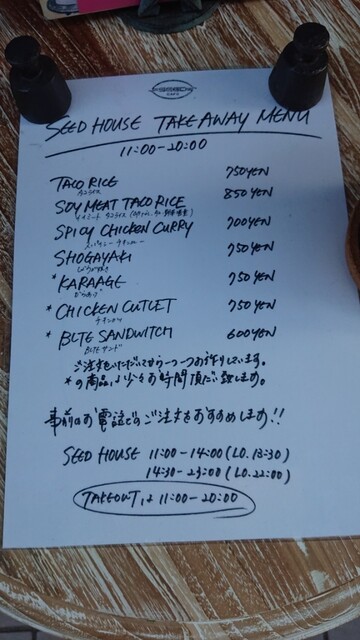 SEED HOUSE TAKE AWAY MENU
11:00-20:00
TACO RICE 750YEN
タコライス
SOY MEAT TACO RICE 850YEN
SPICY CHICKEN CURRY 700YEN
スパイシーチキンカレー
SHOGAYAKI 750YEN
しょうが焼き
*KARAAGE 750YEN
からあげ
*CHICKEN CUTLET 750YEN
チキンカツ
*BLTE SANDWITCH 600YEN
BLTEサンド
ご注文をいただいてから一つ一つお作りしています。
*の商品は少々お時間頂だい致します。
事前のお電話でのご注文をおすすめします!!
SEED HOUSE 11:00-14:00(L.O.13:30)
14:30-23:00(L.O.22:00)
TAKEOUTは11:00-20:00